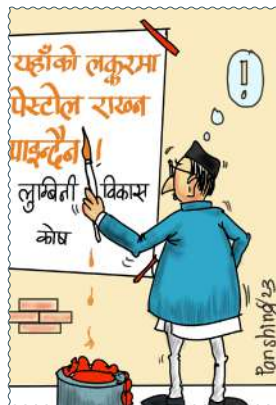 यहाँको लकुरमा
पेस्टोल राख्न
पाइन्दैन !
लुम्बिनी विकास
कोष
!
Panshing/23